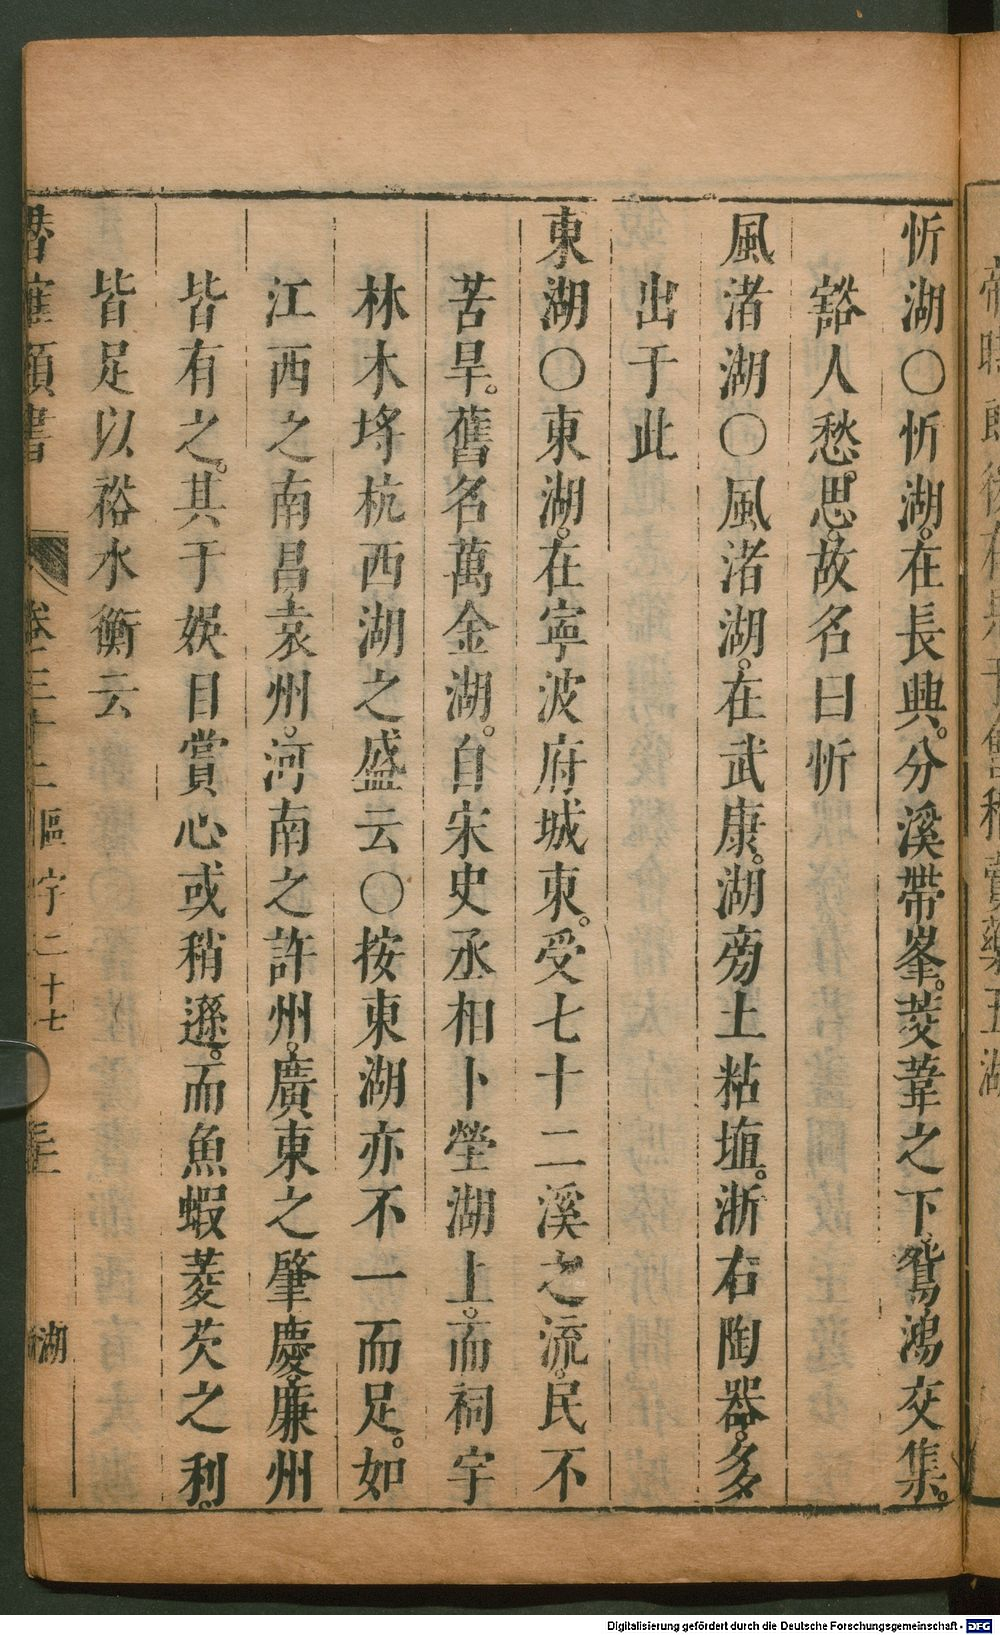 忻湖〇忻湖。在長興。分溪帶峯。菱葦之下。鴛鴻交集。
豁人愁思。故名曰忻
風渚湖〇風渚湖。在武康。湖旁土粘埴。浙右陶器。多
出于此
東湖〇東湖。在寧波府城東。受七十二溪之流。民不
苦旱。舊名萬金湖。自宋史丞相卜塋湖上。而祠宇
林木埓杭西湖之盛云〇按東湖亦不一而足。如
江西之南昌袁州。河南之許州。廣東之肇慶廉州
皆有之。其于娛目賞心或稍遜。而魚蝦菱芡之利。
皆足以裕水衡云
潛確類書
卷三十三
區宇二十七
湖
Digitalisierung gefördert durch die Deutsche Forschungsgemeinschaft - DFG